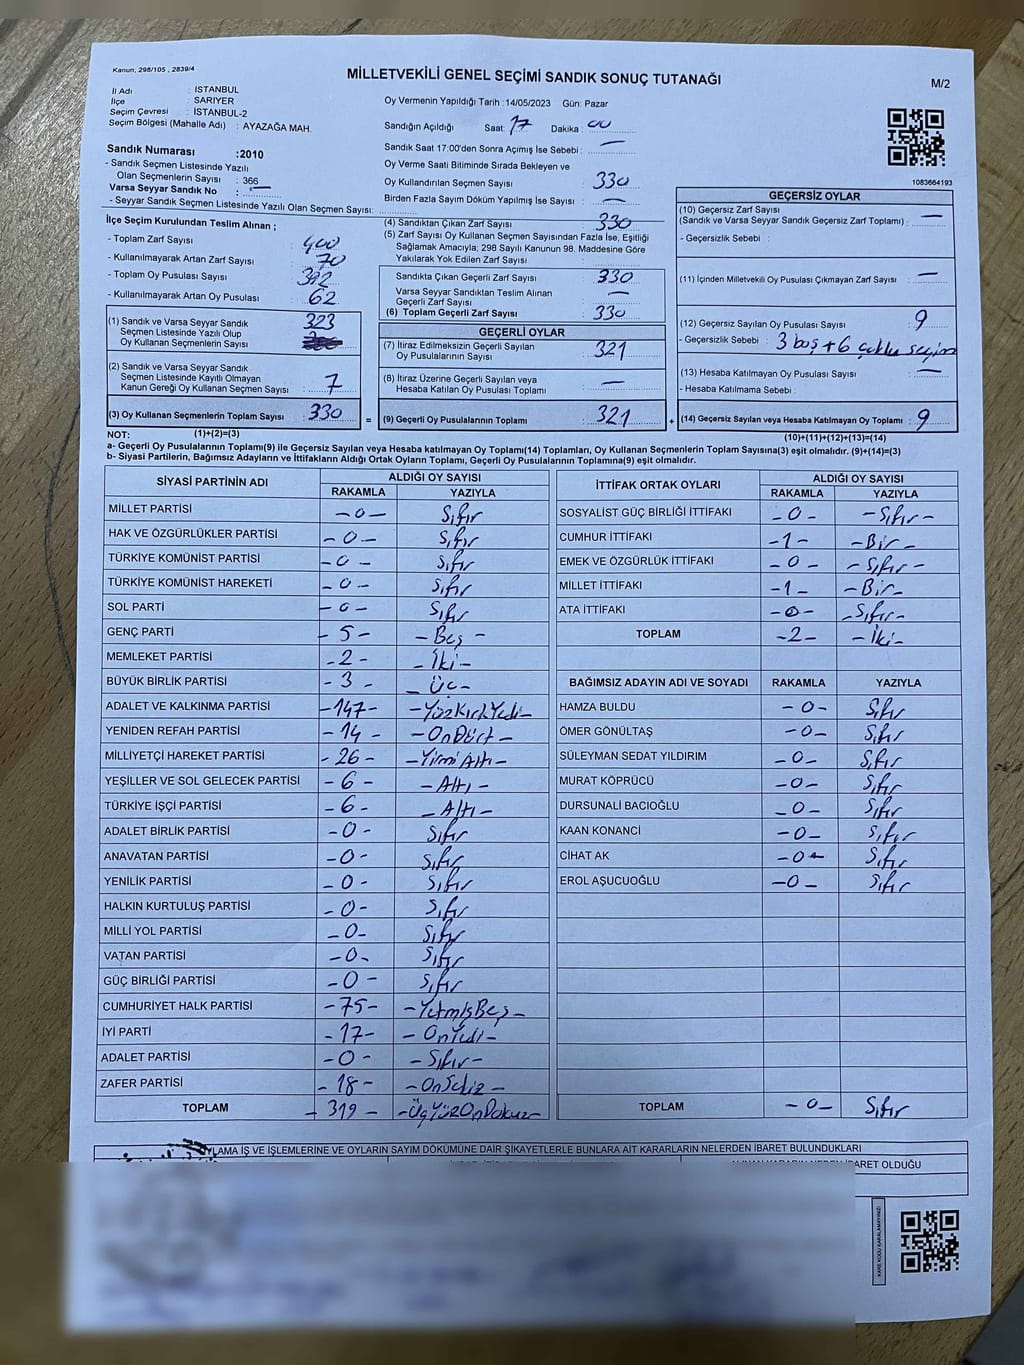 Kanun; 298/105 , 2839/4
MİLLETVEKİLİ GENEL SEÇİMİ SANDIK SONUÇ TUTANAĞI
M/2
İl Adı : İSTANBUL
İlçe : SARIYER
Seçim Çevresi : İSTANBUL-2
Seçim Bölgesi (Mahalle Adı) : AYAZAĞA MAH.
Oy Vermenin Yapıldığı Tarih :14/05/2023 Gün: Pazar
Sandığın Açıldığı Saat: 17 Dakika : 00
Sandık Saat 17:00'den Sonra Açımış İse Sebebi : —
Oy Verme Saati Bitiminde Sırada Bekleyen ve
Oy Kullandırılan Seçmen Sayısı 330
Birden Fazla Sayım Döküm Yapılmış İse Sayısı : —
1083664193
Sandık Numarası :2010
- Sandık Seçmen Listesinde Yazılı
Olan Seçmenlerin Sayısı : 366
Varsa Seyyar Sandık No : —
- Seyyar Sandık Seçmen Listesinde Yazılı Olan Seçmen Sayısı:
İlçe Seçim Kurulundan Teslim Alınan ;
- Toplam Zarf Sayısı : 400
- Kullanılmayarak Artan Zarf Sayısı : 70
- Toplam Oy Pusulası Sayısı : 392
- Kullanılmayarak Artan Oy Pusulası : 62
(1) Sandık ve Varsa Seyyar Sandık 323
Seçmen Listesinde Yazılı Olup
Oy Kullanan Seçmenlerin Sayısı
(2) Sandık ve Varsa Seyyar Sandık
Seçmen Listesinde Kayıtlı Olmayan
Kanun Gereği Oy Kullanan Seçmen Sayısı : 7
(3) Oy Kullanan Seçmenlerin Toplam Sayısı : 330
(1)+(2)=(3)
(4) Sandıktan Çıkan Zarf Sayısı : 330
(5) Zarf Sayısı Oy Kullanan Seçmen Sayısından Fazla İse, Eşitliği
Sağlamak Amacıyla; 298 Sayılı Kanunun 98. Maddesine Göre
Yakılarak Yok Edilen Zarf Sayısı :
Sandıkta Çıkan Geçerli Zarf Sayısı : 330
Varsa Seyyar Sandıktan Teslim Alınan
Geçerli Zarf Sayısı : —
(6) Toplam Geçerli Zarf Sayısı : 330
GEÇERLİ OYLAR
(7) İtiraz Edilmeksizin Geçerli Sayılan
Oy Pusulalarının Sayısı : 321
(8) İtiraz Üzerine Geçerli Sayılan veya
Hesaba Katılan Oy Pusulası Toplamı : —
= (9) Geçerli Oy Pusulalarının Toplamı : 321
GEÇERSİZ OYLAR
(10) Geçersiz Zarf Sayısı
(Sandık ve Varsa Seyyar Sandık Geçersiz Zarf Toplamı) : —
- Geçersizlik Sebebi :
(11) İçinden Milletvekili Oy Pusulası Çıkmayan Zarf Sayısı : —
(12) Geçersiz Sayılan Oy Pusulası Sayısı : 9
- Geçersizlik Sebebi : 3 boş + 6 çoklu seçim
(13) Hesaba Katılmayan Oy Pusulası Sayısı : —
- Hesaba Katılmama Sebebi :
+ (14) Geçersiz Sayılan veya Hesaba Katılmayan Oy Toplamı : 9
(10)+(11)+(12)+(13)=(14)
NOT:
a- Geçerli Oy Pusulalarının Toplamı(9) ile Geçersiz Sayılan veya Hesaba katılmayan Oy Toplamı(14) Toplamları, Oy Kullanan Seçmenlerin Toplam Sayısına(3) eşit olmalıdır. (9)+(14)=(3)
b- Siyasi Partilerin, Bağımsız Adayların ve İttifakların Aldığı Ortak Oyların Toplamı, Geçerli Oy Pusulalarının Toplamına(9) eşit olmalıdır.
SİYASİ PARTİNİN ADI ALDIĞI OY SAYISI
RAKAMLA YAZIYLA
MİLLET PARTİSİ -0- Sıfır
HAK VE ÖZGÜRLÜKLER PARTİSİ -0- Sıfır
TÜRKİYE KOMÜNİST PARTİSİ -0- Sıfır
TÜRKİYE KOMÜNİST HAREKETİ -0- Sıfır
SOL PARTİ -0- Sıfır
GENÇ PARTİ -5- -Beş-
MEMLEKET PARTİSİ -2- -İki-
BÜYÜK BİRLİK PARTİSİ -3- -Üç-
ADALET VE KALKINMA PARTİSİ -147- -YüzKırkYedi-
YENİDEN REFAH PARTİSİ -14- -OnDört-
MİLLİYETÇİ HAREKET PARTİSİ -26- -YirmiAltı-
YEŞİLLER VE SOL GELECEK PARTİSİ -6- -Altı-
TÜRKİYE İŞÇİ PARTİSİ -6- -Altı-
ADALET BİRLİK PARTİSİ -0- Sıfır
ANAVATAN PARTİSİ -0- Sıfır
YENİLİK PARTİSİ -0- Sıfır
HALKIN KURTULUŞ PARTİSİ -0- Sıfır
MİLLİ YOL PARTİSİ -0- Sıfır
VATAN PARTİSİ -0- Sıfır
GÜÇ BİRLİĞİ PARTİSİ -0- Sıfır
CUMHURİYET HALK PARTİSİ -75- -YetmişBeş-
İYİ PARTİ -17- -OnYedi-
ADALET PARTİSİ -0- -Sıfır-
ZAFER PARTİSİ -18- -OnSekiz-
TOPLAM -319- -ÜçYüzOnDokuz-
İTTİFAK ORTAK OYLARI ALDIĞI OY SAYISI
RAKAMLA YAZIYLA
SOSYALİST GÜÇ BİRLİĞİ İTTİFAKI -0- -Sıfır-
CUMHUR İTTİFAKI -1- -Bir-
EMEK VE ÖZGÜRLÜK İTTİFAKI -0- -Sıfır-
MİLLET İTTİFAKI -1- -Bir-
ATA İTTİFAKI -0- -Sıfır-
TOPLAM -2- -İki-
BAĞIMSIZ ADAYIN ADI VE SOYADI RAKAMLA YAZIYLA
HAMZA BULDU -0- Sıfır
ÖMER GÖNÜLTAŞ -0- Sıfır
SÜLEYMAN SEDAT YILDIRIM -0- Sıfır
MURAT KÖPRÜCÜ -0- Sıfır
DURSUNALİ BACIOĞLU -0- Sıfır
KAAN KONANCİ -0- Sıfır
CİHAT AK -0- Sıfır
EROL AŞUCUOĞLU -0- Sıfır
TOPLAM -0- Sıfır
YLAMA İŞ VE İŞLEMLERİNE VE OYLARIN SAYIM DÖKÜMÜNE DAİR ŞİKAYETLERLE BUNLARA AİT KARARLARIN NELERDEN İBARET BULUNDUKLARI
ALINAN KARARIN NEDEN İBARET OLDUĞU
KARE KODU KARALAMAYINIZ!